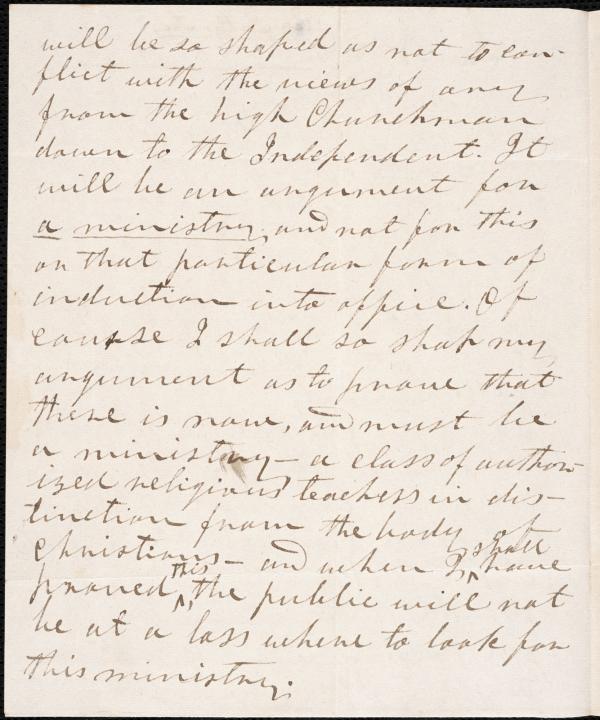 will be so shaped as not to con-
flict with the views of any
from the high Churchman
down to the Independent. It
will be an argument for
a ministry, and not for this
or that particular form of
induction into office. Of
course I shall so shap my
argument as to prove that
there is now, and must be
a ministry – a class of author-
ized religious teachers in dis-
tinction from the body of
christians – and when I shall have
proved this, the public will not
be at a loss where to look for
this ministry.